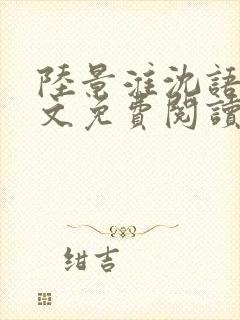 陸景淮沈語
文免費閱讀
紺吉